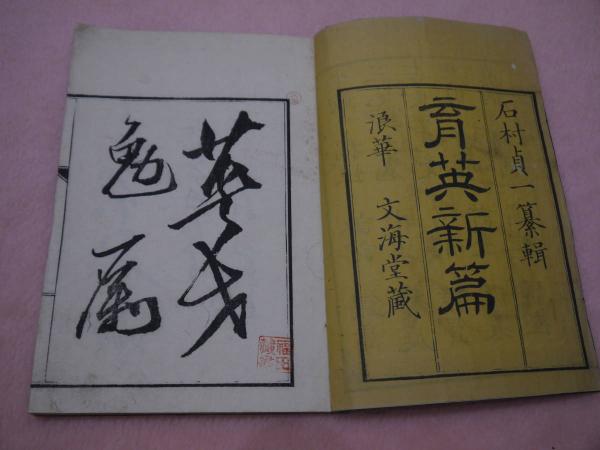 石村貞一纂輯
育英新篇
浪華 文海�藏
英才
勉